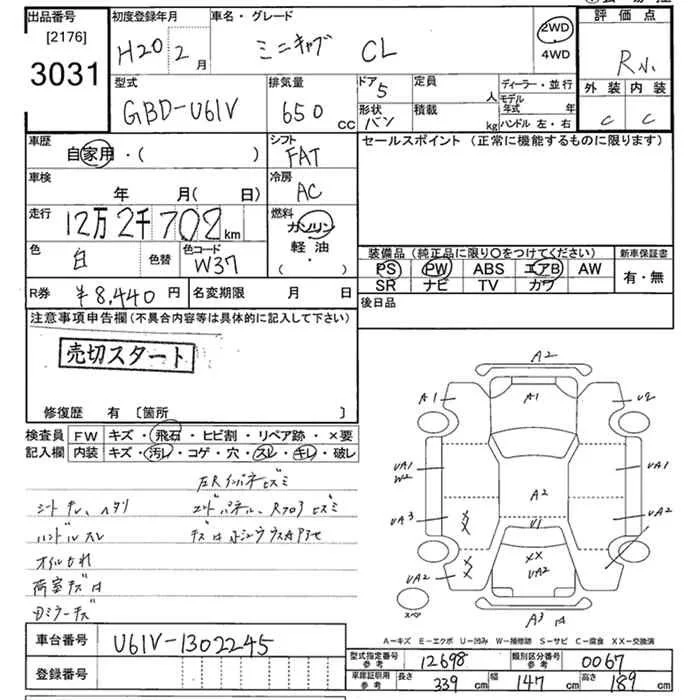 出品番号 初度登録年月 車名・グレード 評価点
[2176] H20 2月 ミニキャブ CL 2WD R小
3031 4WD
型式 排気量 ドア 定員 ディーラー・並行 外装 内装
GBD-U61V 650 CC 5 人 モデル年式 年 C C
形状 積載 kg ハンドル 左・右
バン
車歴 シフト セールスポイント (正常に機能するものに限ります)
自家用・( ) FAT
車検 冷房
年 月( 日) AC
走行 燃料
12万2千702km ガソリン
色 色替 色コード 軽油
白 W37 ( ・ )
装備品 (純正品に限り○をつけてください) 新車保証書
PS PW ABS エアB AW 有・無
SR ナビ TV カワ
R券 ¥8,440円 名変期限 月 日 後日品
注意事項申告欄 (不具合内容等は具体的に記入して下さい)
売切スタート
修復歴 有 [箇所 ]
検査員 FW キズ・飛石・ヒビ割・リペア跡・×要
記入欄 内装 キズ・汚レ・コゲ・穴・スレ・キレ・破レ
左Rインパネヒズミ
シートキレ、ヘタリ エンドパネル、Rフロアヒズミ
ハンドルスレ
オイルもれ
荷室キズ
ミラーキズ
A2
A1 A1 U2
UA1 UA1
W2
A2
UA3 U1 UA2
XX XX
UA2 UA2
スペア A3
A－キズ E－エクボ U－凹み W－補修跡 S－サビ C－腐食 XX－交換済
車台番号 U61V-1302245
登録番号
型式指定番号 参考 12698 類別区分番号 参考 0067
車庫証明用 参考 長さ 339cm 幅 147cm 高さ 189cm